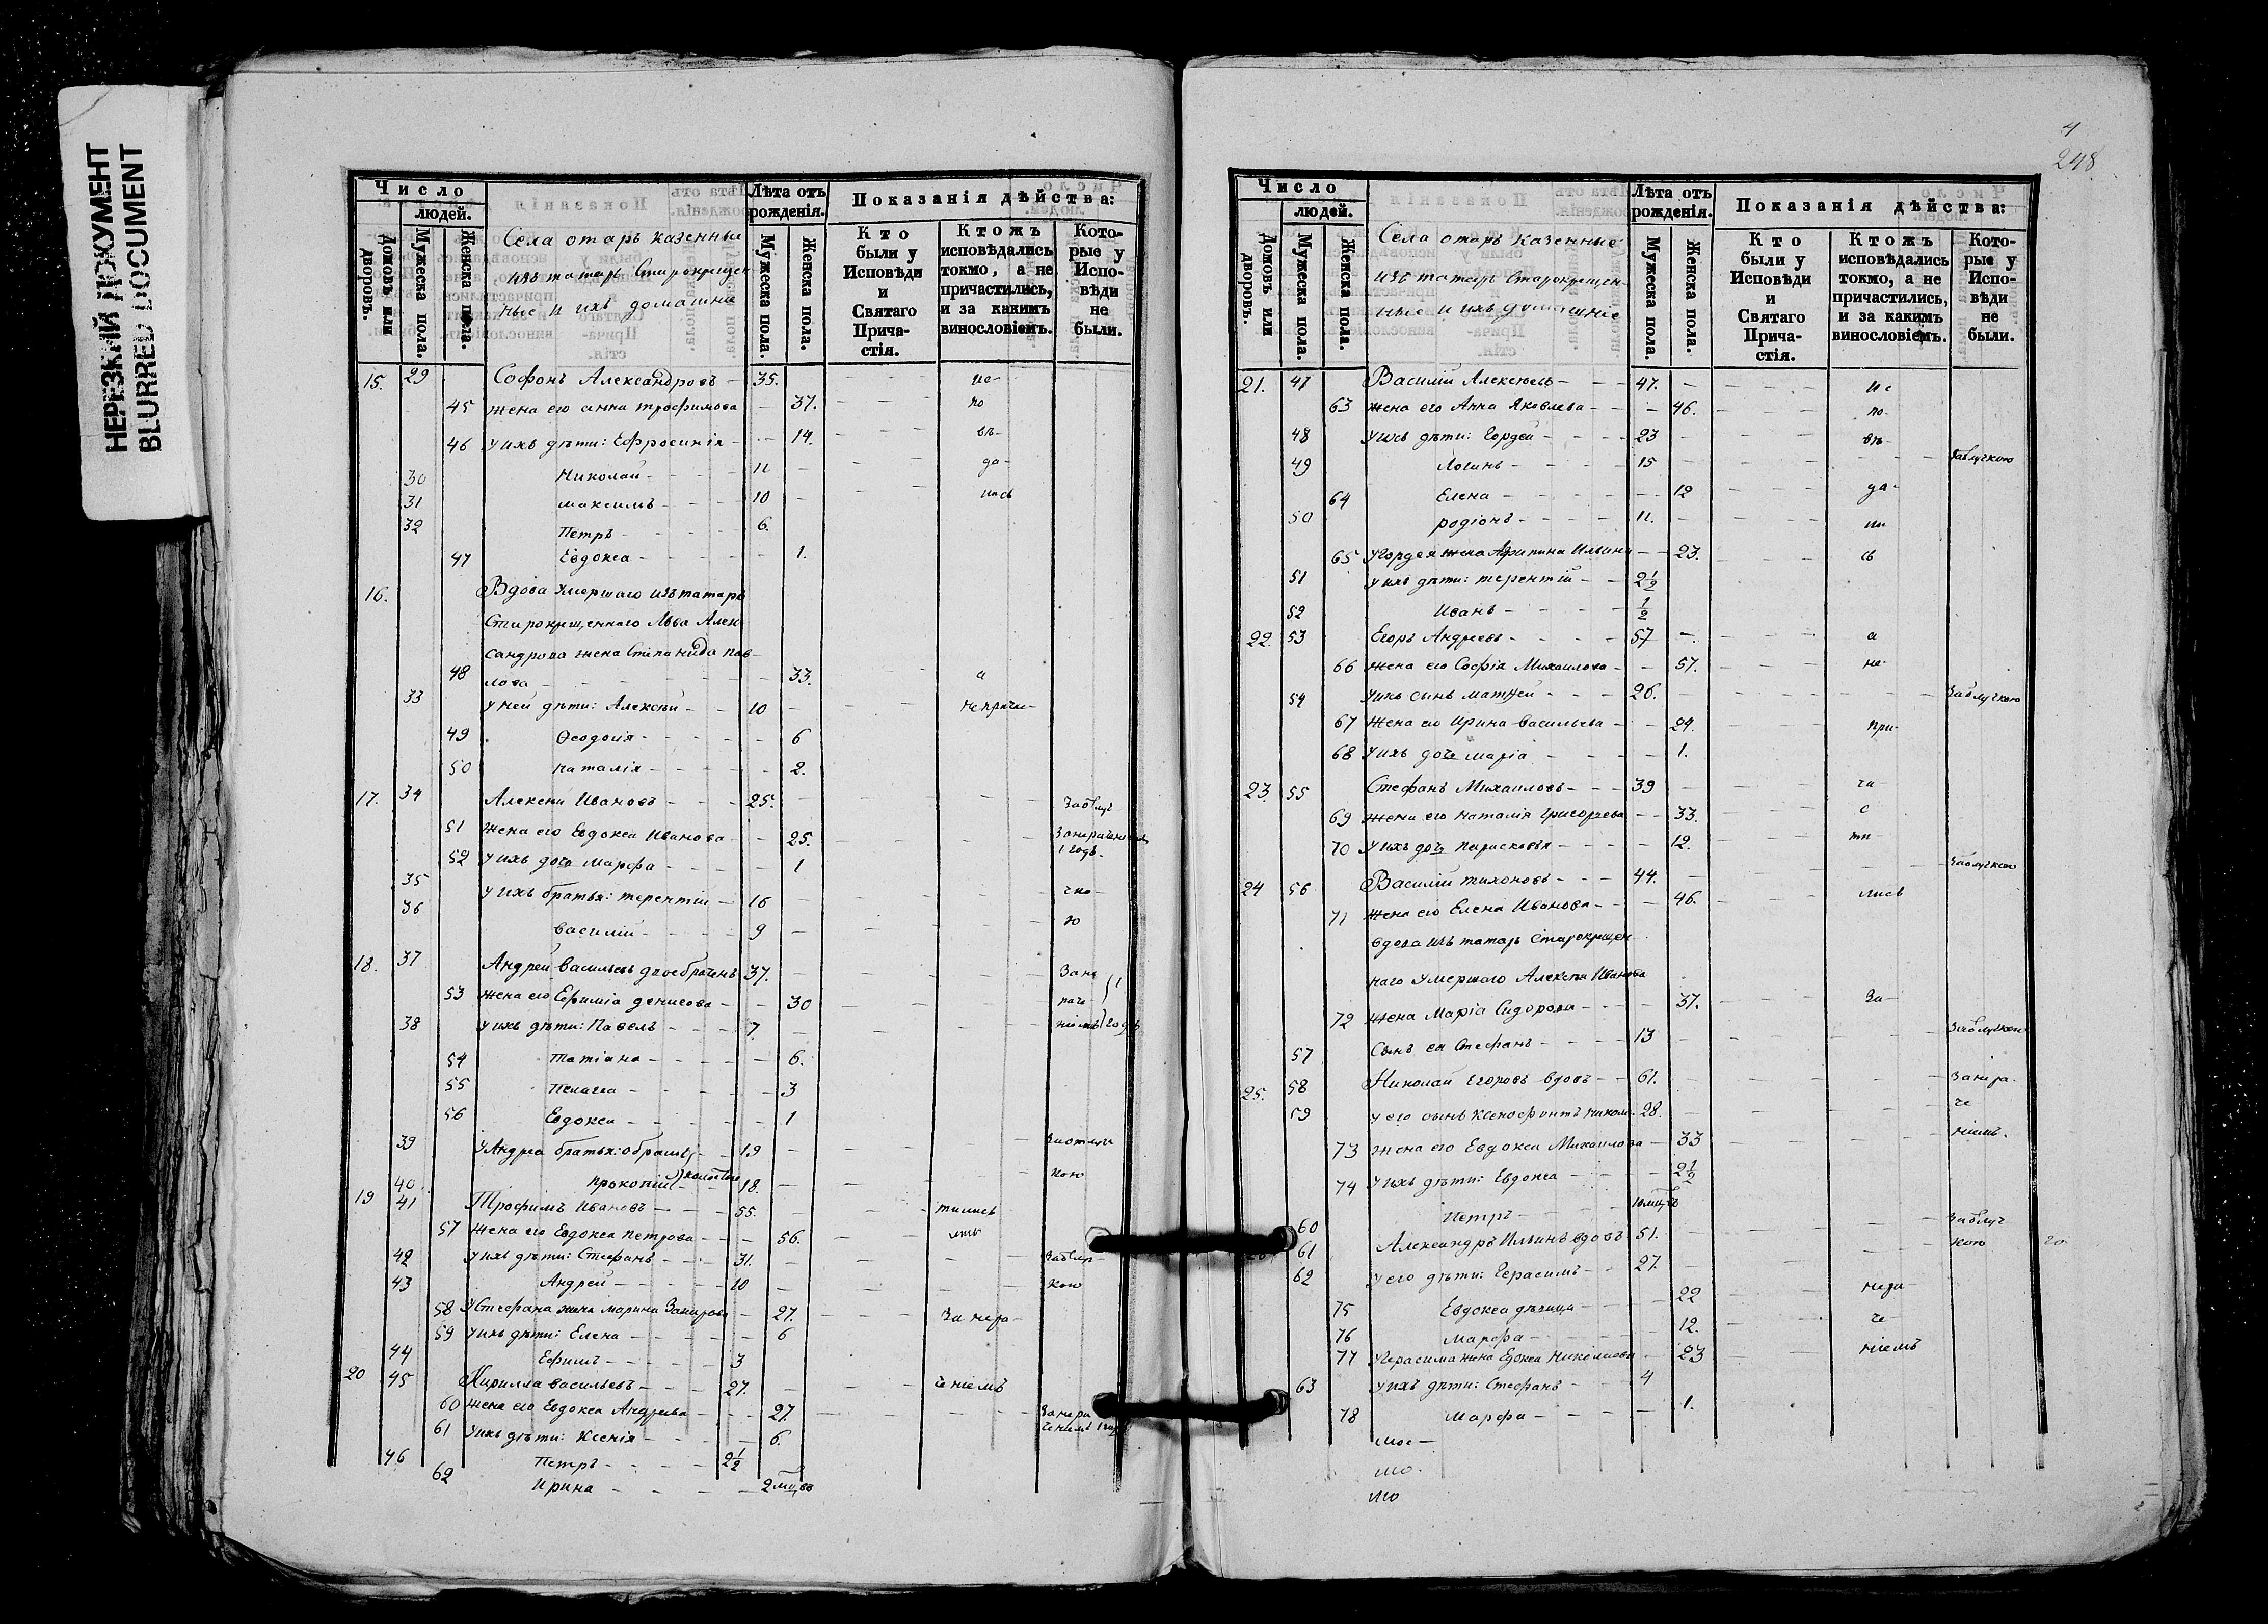 НЕРЕЗКИЙ ДОКУМЕНТ
BLURRED DOCUMENT
Число
людей.
Домовъ или дворовъ.
Мужеска пола.
Женска пола.
Села отаръ казенные
изъ татаръ Старокрещен
ные и ихъ домашние
Лѣта отъ рожденія.
Мужеска пола.
Женска пола.
Показанія дѣйства:
Кто были у Исповѣди и Святаго Прича-стія.
Ктожъ исповѣдались токмо, а не причастились, и за какимъ винословіемъ.
Кото-рые у Испо-вѣди не были.
15. 29 Софонъ Александровъ 35. ис-
45 жена его анна трофимова 37. по
46 у ихъ дѣти: Ефросинія 14. вѣ-
30 Николай 11 да-
31 максимъ 10 лись
32 Петръ 6.
47 Евдокеа 1.
16. Вдова умершаго изъ татаръ
Старокрещеннаго Льва Алек
сандрова жена Степанида пав
48 лова 33. а
33 у ней дѣти: Алексѣй 10 не прича-
49 Ѳеодосія 6
50 наталія 2.
17. 34 Алексѣй Ивановъ 25. Заблуч
51 жена его Евдокеа Иванова 25. 1 годъ.
52 у ихъ дочь марфа 1
35 у ихъ братья: терентій 16 чко-
36 василий 9 ю
18. 37 Андрей васильевъ двоебраченъ 37. Зане
53 жена его Ефиміа денисова 30 раче
38 у ихъ дѣти: Павелъ 7. ніемъ 1 годъ
54 татіана 6.
55 Пелагеа 3
56 Евдокеа 1
39 У Андреа братья: 19 Заотлуч
40 прокопій холостые 18. кою
19 41 Трофимъ Ивановъ 55. тились
57 жена его Евдокеа петрова 56.
42 у ихъ дѣти: Стефанъ 31. Заблуч
43 Андрей 10 кою
58 У Стефана жена марина 27. За нера-
59 у ихъ дѣти: Елена 6
44 Ефимъ 3
20 45 Кирилла васильевъ 27. ченіемъ
60 жена его Евдокеа Андреева 27. Занера
61 у ихъ дѣти: Ксенія 6. ченіемъ 1 годъ
46 Петръ 2½
62 Ирина 2 мцовъ
4
248
Число
людей.
Домовъ или дворовъ.
Мужеска пола.
Женска пола.
Села отаръ казенные
изъ татаръ Старокрещен-
ные и ихъ домашние
Лѣта отъ рожденія.
Мужеска пола.
Женска пола.
Показанія дѣйства:
Кто были у Исповѣди и Святаго Прича-стія.
Ктожъ исповѣдались токмо, а не причастились, и за какимъ винословіемъ.
Кото-рые у Испо-вѣди не были.
21. 47 Василій Алексѣевъ 47. ис
63 жена его Анна Яковлева 46. по-
48 у ихъ дѣти: Гордей 23 вѣ-
49 Логинъ 15 Заблучкою
64 Елена 12 да-
50 родіонъ 11. ли
65 у Гордея жена Агрипина Ильина 23. сь
51 у ихъ дѣти: терентій 2½
52 Иванъ ½
22. 53 Егоръ Андреевъ 57 а
66 жена его Софія Михаилова 57. не-
54 у ихъ сынъ матѳей 26. Заблучкою
67 жена его Ирина васильева 24. при-
68 у ихъ дочь маріа 1.
23. 55 Стефанъ Михаиловъ 39 ча-
69 жена его наталія Григорьева 33. с
70 у ихъ дочь парасковья 12. ти-
24 56 Василій тихоновъ 44. Заблучкою
71 жена его Елена Иванова 46. лись
вдова изъ татар Старокрещен
наго умершаго Алексѣя Иванова
72 жена Маріа Сидорова 37. За-
57 Сынъ ея Стефанъ 13 Заблучкою
25. 58 Николай Егоровъ вдовъ 61. Занера-
59 у его сынъ Ксенофонтъ никола 28. че
73 жена его Евдокеа Михаилова 33 ніемъ.
74 у ихъ дѣти: Евдокеа 2½
60 Петръ 10 мцовъ
61 Александръ Ильинъ вдовъ 51. Заблуч
62 у его дѣти: Герасимъ 27. кою
75 Евдокеа дѣвица 22 нера-
76 Марфа 12. че-
77 у Герасима жена Евдокеа Николаева 23 ніемъ
63 у ихъ дѣти: Стефанъ 4
78 Марфа 1.